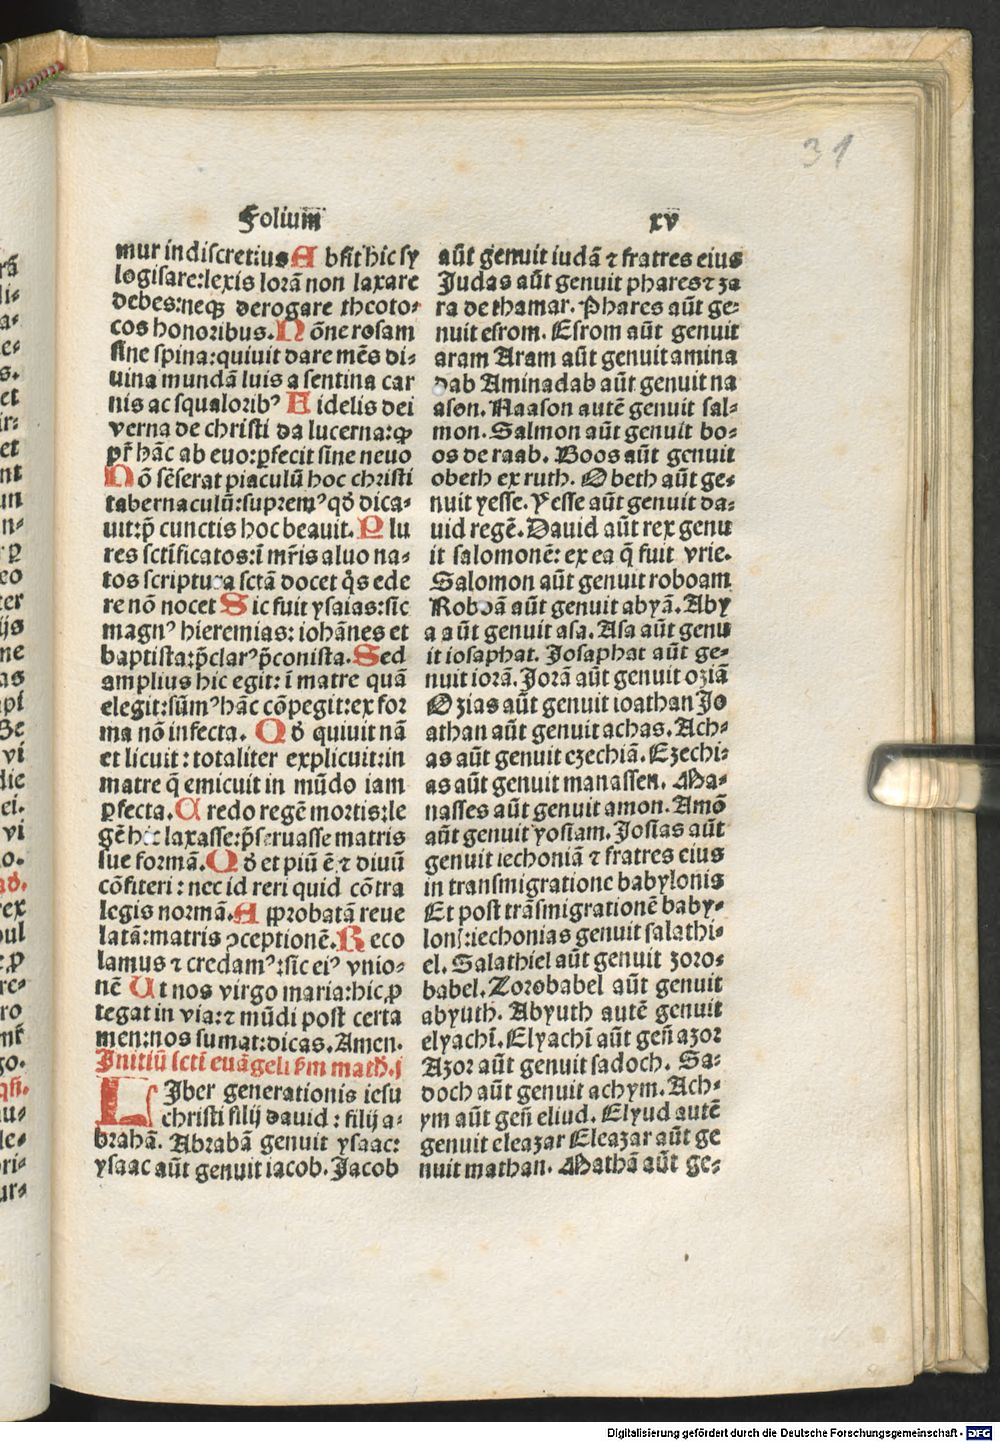 31
Folium̅ xv
mur indiscretius A bsit hic sy
logisare:lexis lorā non laxare
debes:neqꝫ derogare theoto-
cos honoribus. N ōne rosam
sine spina:quiuit dare mēs di-
uina mundā luis a sentina car
nis ac squaloribꝰ F idelis dei
verna de christi da lucerna:ꝙ
pr̄ hāc ab euo:ꝑfecit sine neuo
N ō sēserat piaculū hoc christi
tabernaculū:supremꝰ qđ dica-
uit:p̄ cunctis hoc beauit. P lu
res sctificatos:ī mr̄is aluo na-
tos scriptura sctā docet q̄s ede
re nō nocet S ic fuit ysaias:sic
magnꝰ hieremias: iohānes et
baptista:p̄clarꝰ p̄conista. Sed
amplius hic egit: ī matre quā
elegit:sūmꝰ hāc cōpegit:ex for
ma nō infecta. Q đ quiuit nā
et licuit: totaliter explicuit:in
matre q̄ emicuit in mūdo iam
ꝑfecta. C redo regē mortis:le
gē hic laxasse:p̄seruasse matris
sue formā. Q đ et piū ē ⁊ diuū
cōfiteri: nec id reri quid cōtra
legis normā. A pprobatā reue
latā:matris ꝯceptionē. R eco
lamus ⁊ credamꝰ:sic eiꝰ vnio-
nē U t nos virgo maria:hic ꝓ
tegat in via:⁊ mūdi post certa
men:nos sumat:dicas. Amen.
Initiū scti euāgelij sm̄ math̄. j
LIber generationis iesu
christi filij dauid: filij a-
brahā. Abrabā genuit ysaac:
ysaac aūt genuit iacob. Jacob
aūt genuit iudā ⁊ fratres eius
Judas aūt genuit phares ⁊ za
ra de thamar. Phares aūt ge-
nuit esrom. Esrom aūt genuit
aram Aram aūt genuit amina
dab Aminadab aūt genuit na
ason. Naason autē genuit sal-
mon. Salmon aūt genuit bo-
os de raab. Boos aūt genuit
obeth ex ruth. Obeth aūt ge-
nuit yesse. Yesse aūt genuit da-
uid regē. Dauid aūt rex genu
it salomonē: ex ea q̄ fuit vrie.
Salomon aūt genuit roboam
Roboā aūt genuit abyā. Aby
a aūt genuit asa. Asa aūt genu
it iosaphat. Josaphat aūt ge-
nuit iorā. Jorā aūt genuit oziā
Ozias aūt genuit ioathan Jo
athan aūt genuit achas. Ach-
as aūt genuit ezechiā. Ezechi-
as aūt genuit manassen. Ma-
nasses aūt genuit amon. Amō
aūt genuit yosiam. Josias aūt
genuit iechoniā ⁊ fratres eius
in transmigratione babylonis
Et post trāsmigrationē baby-
lonis:iechonias genuit salathi-
el. Salathiel aūt genuit zoro-
babel. Zorobabel aūt genuit
abyuth. Abyuth autē genuit
elyachī. Elyachī aūt geñ azor
Azor aūt genuit sadoch. Sa-
doch aūt genuit achym. Ach-
ym aūt geñ eliud. Elyud autē
genuit eleazar Eleazar aūt ge
nuit mathan. Mathā aūt ge-
Digitalisierung gefördert durch die Deutsche Forschungsgemeinschaft - DFG